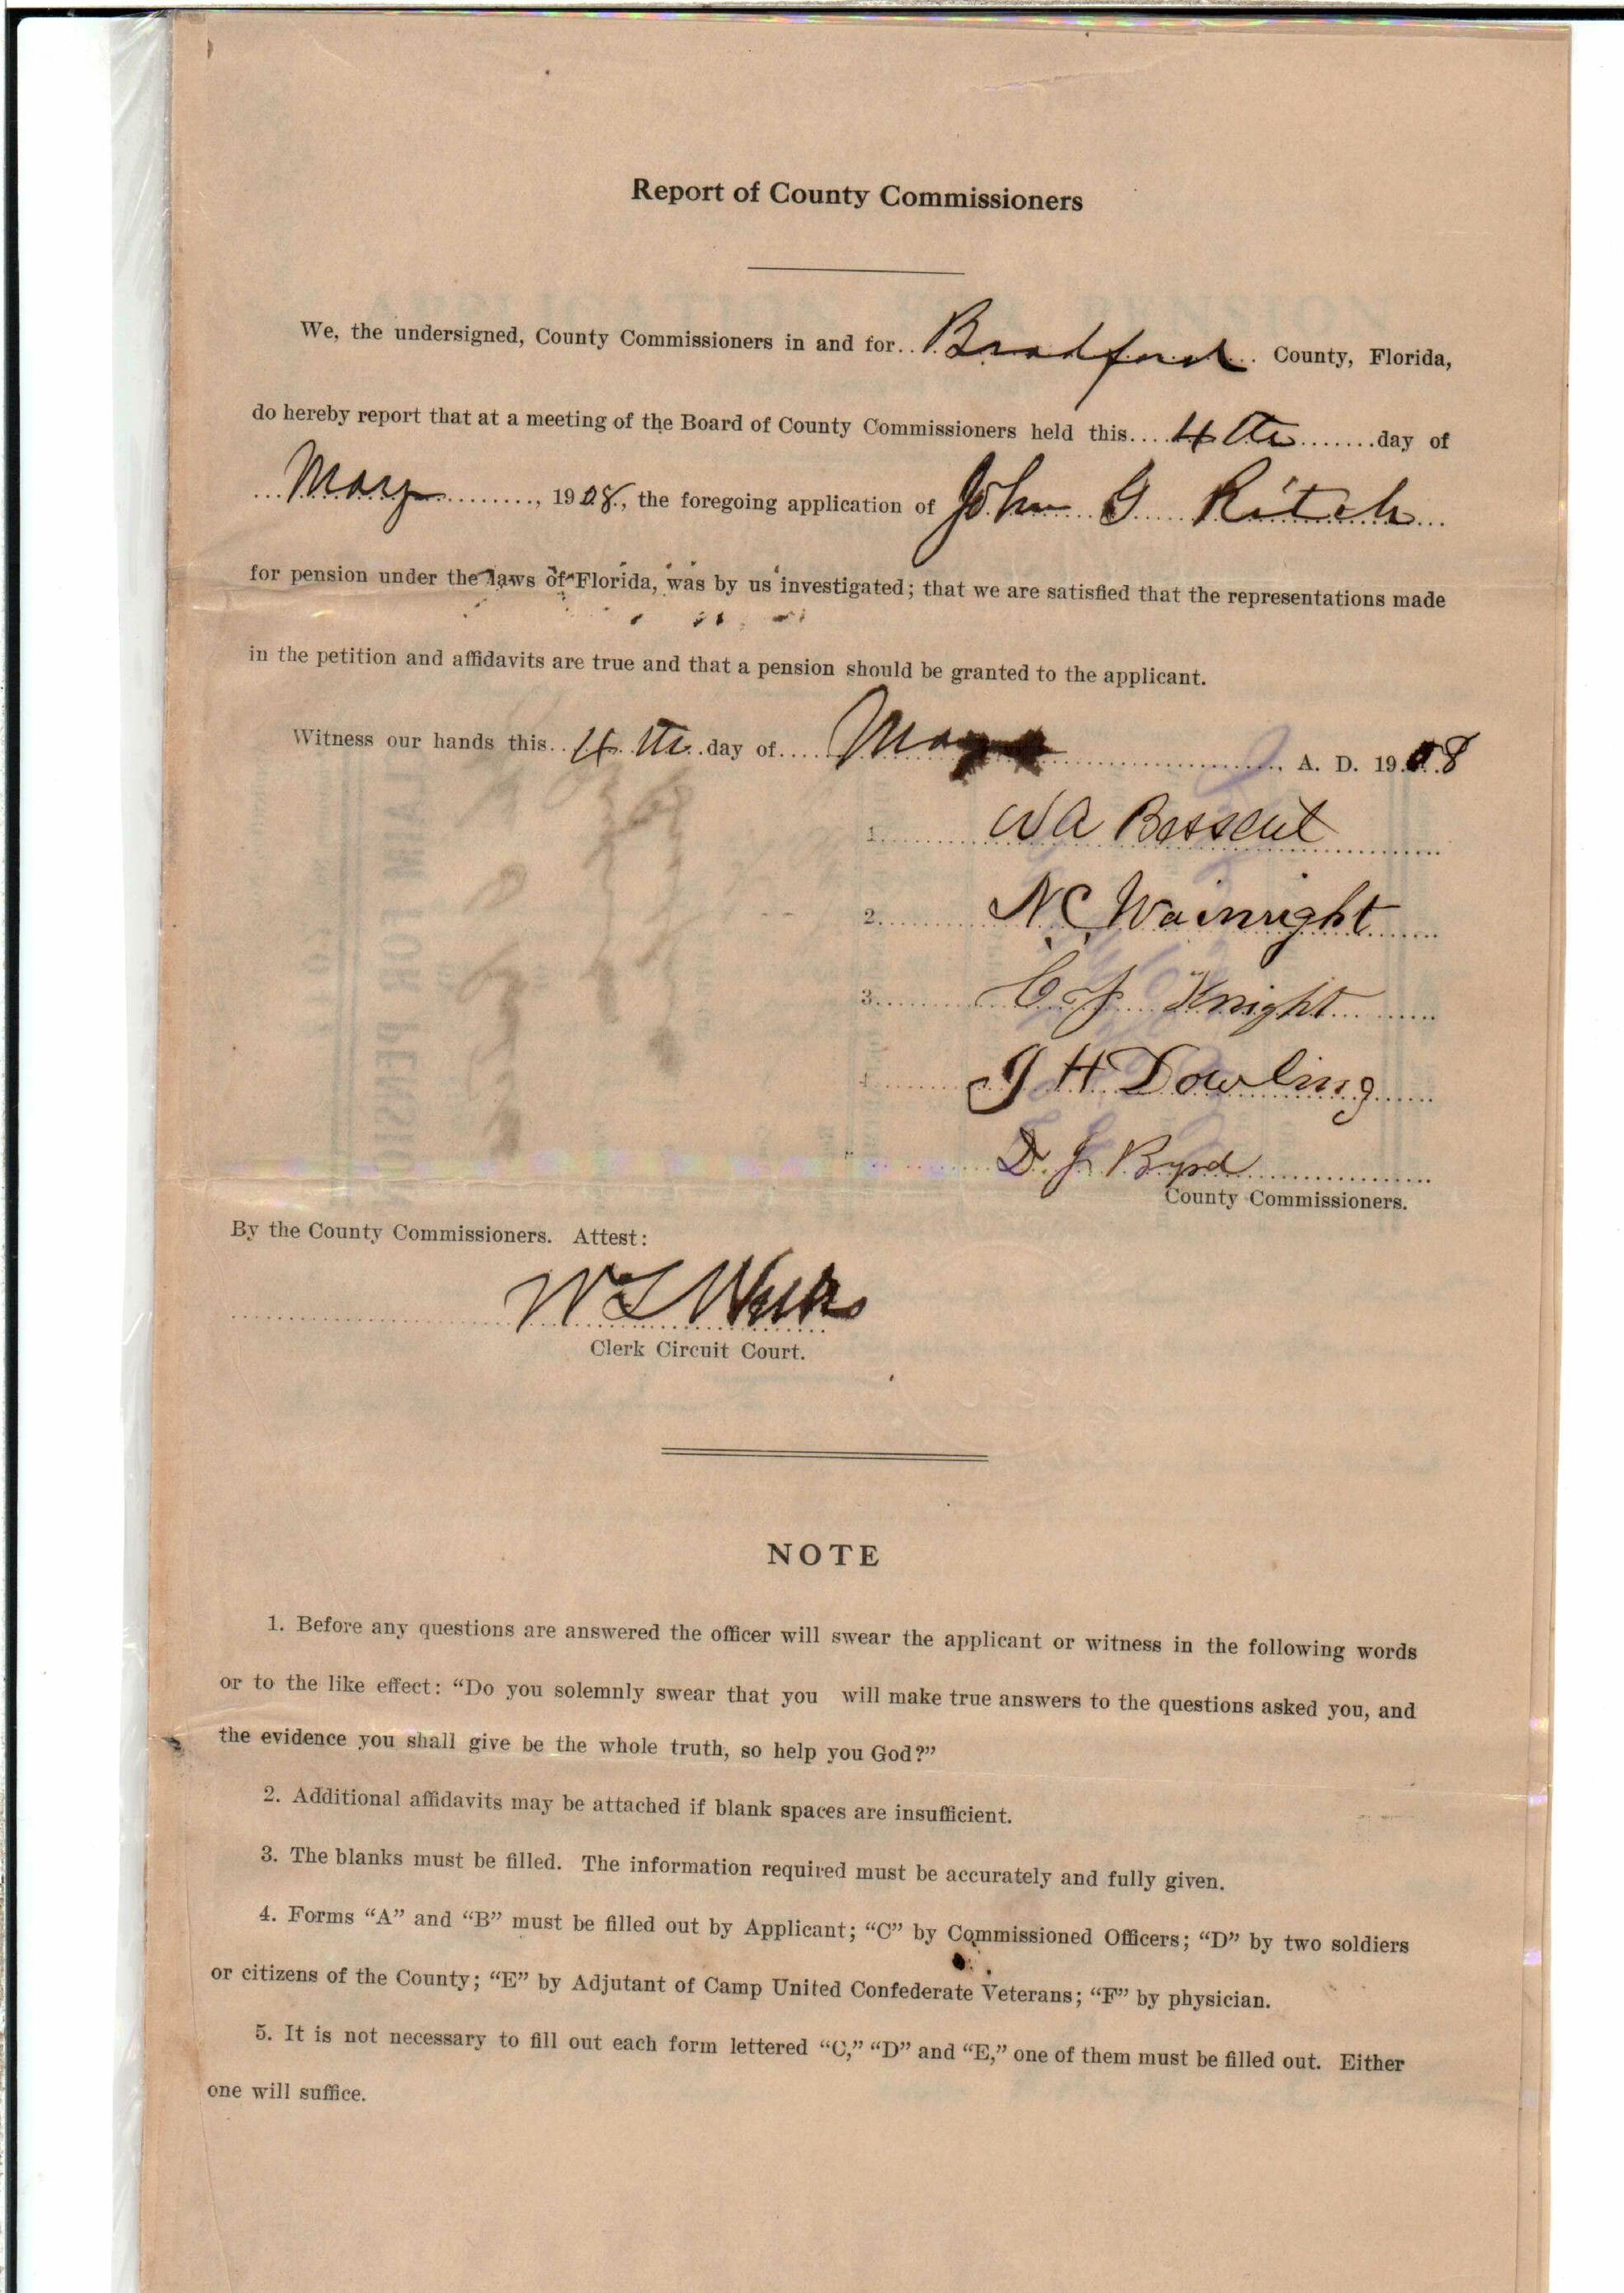 Report of County Commissioners
We, the undersigned, County Commissioners in and for.. Bradford.. County, Florida,
do hereby report that at a meeting of the Board of County Commissioners held this.... 4th .......day of
... May ........., 1908., the foregoing application of John G Ritch...
for pension under the laws of Florida, was by us investigated; that we are satisfied that the representations made
in the petition and affidavits are true and that a pension should be granted to the applicant.
Witness our hands this.. 4th.. day of.... May ......................, A. D. 19.08
1. WA Bessent
2. N.C. Wainright
3. C. J. Knight
4. J H Dowling
D. J. Byrd
County Commissioners.
By the County Commissioners. Attest:
W L
Clerk Circuit Court.
NOTE
1. Before any questions are answered the officer will swear the applicant or witness in the following words
or to the like effect: “Do you solemnly swear that you will make true answers to the questions asked you, and
the evidence you shall give be the whole truth, so help you God?”
2. Additional affidavits may be attached if blank spaces are insufficient.
3. The blanks must be filled. The information required must be accurately and fully given.
4. Forms “A” and “B” must be filled out by Applicant; “C” by Commissioned Officers; “D” by two soldiers
or citizens of the County; “E” by Adjutant of Camp United Confederate Veterans; “F” by physician.
5. It is not necessary to fill out each form lettered “C,” “D” and “E,” one of them must be filled out. Either
one will suffice.